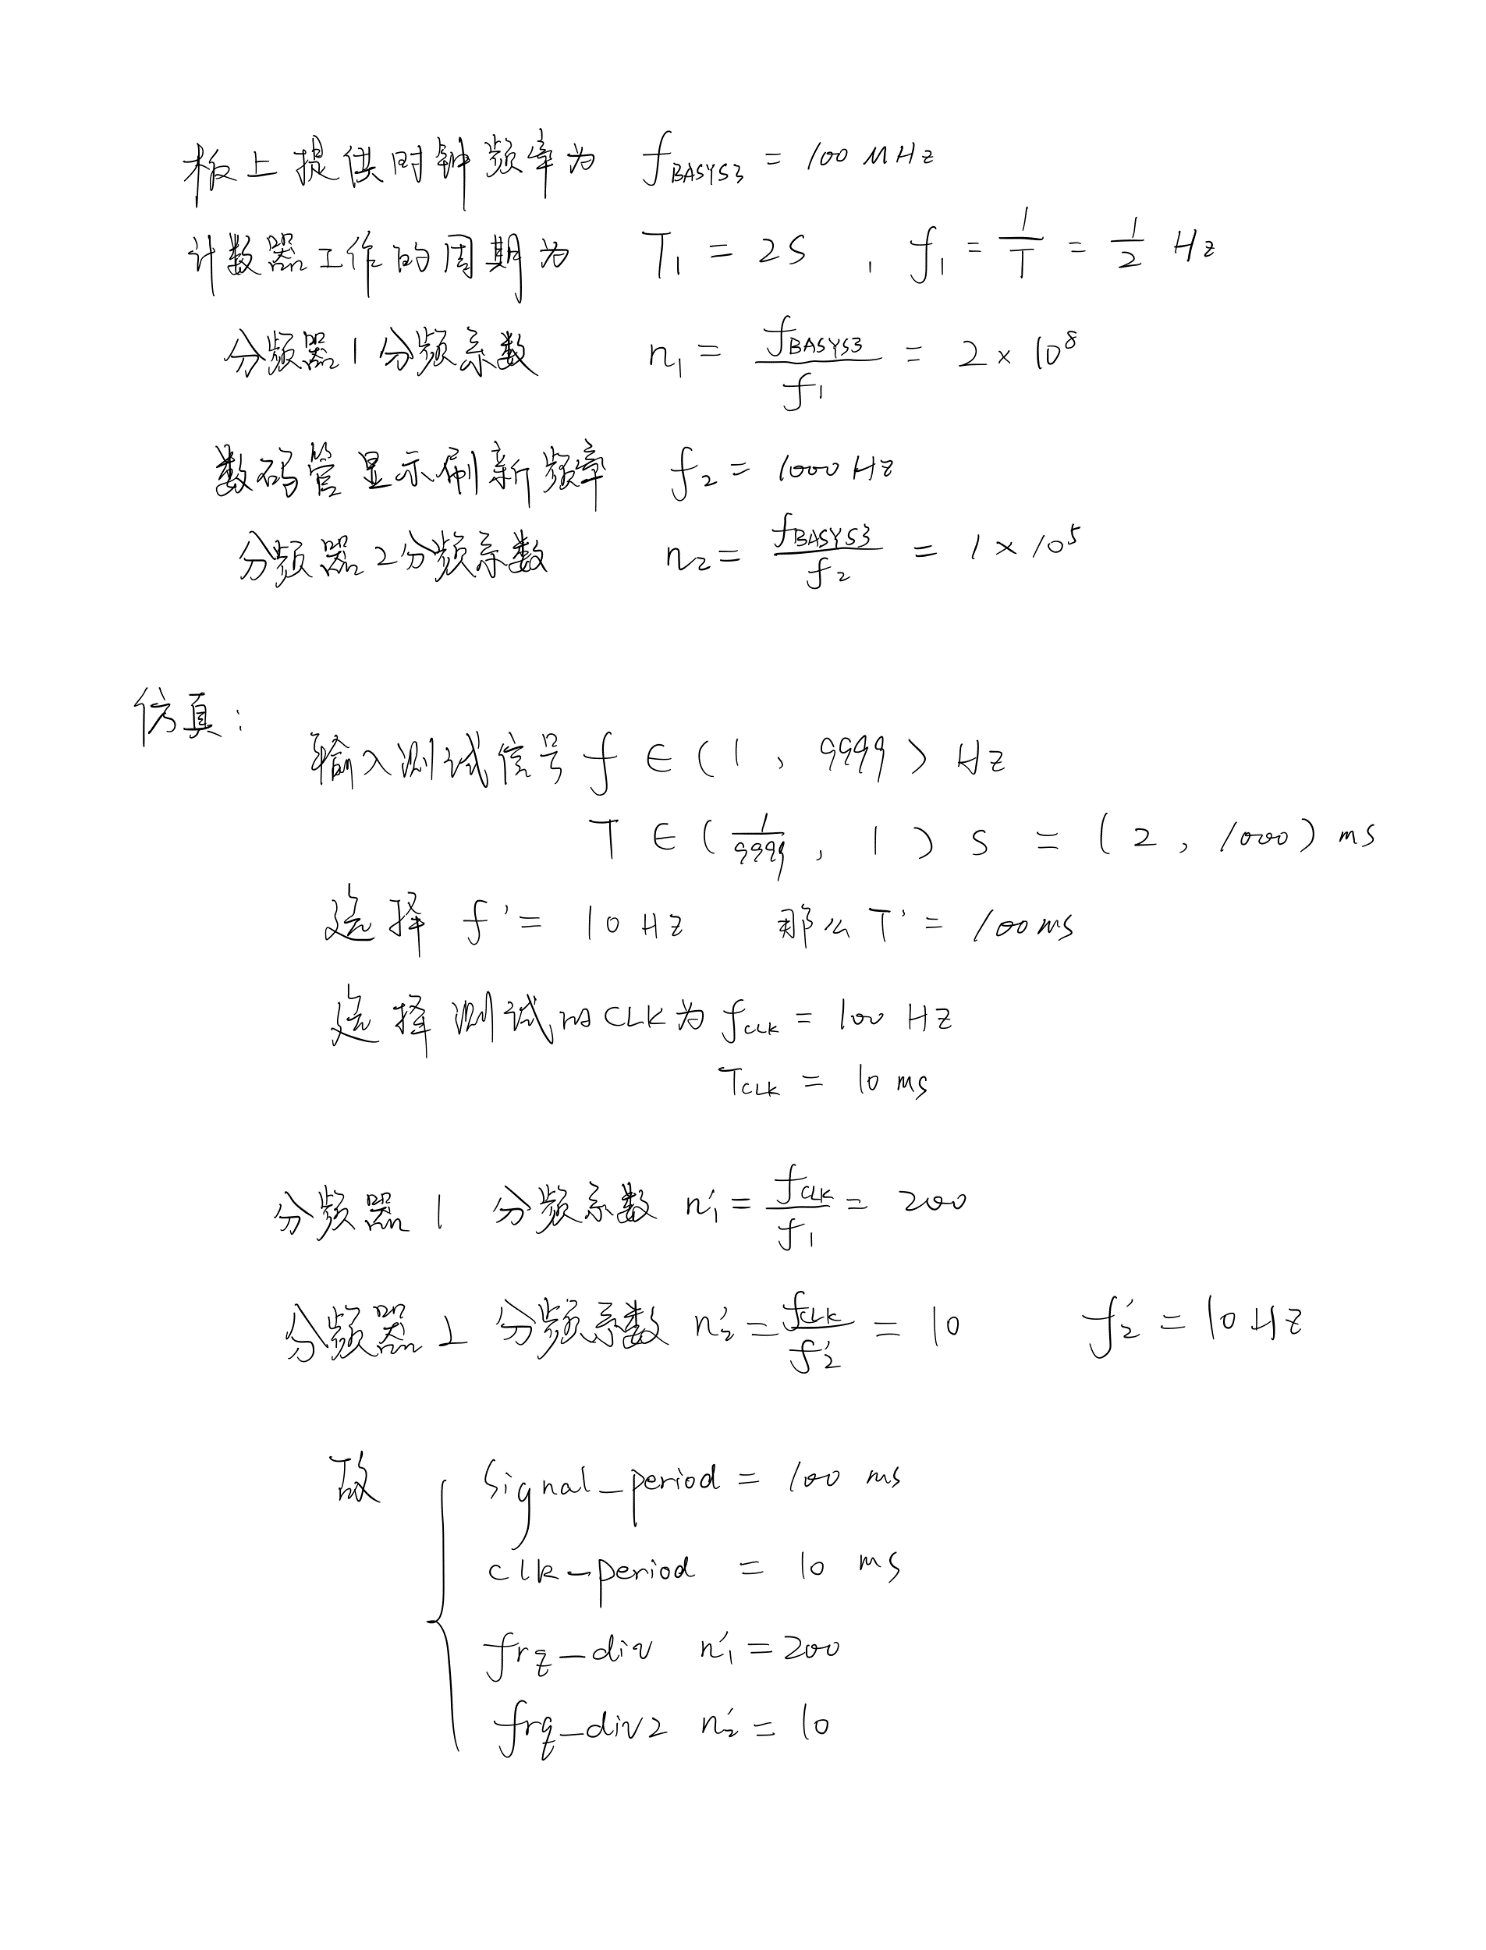 板上提供时钟频率为 f_BASYS3 = 100 MHz
计数器工作的周期为 T₁ = 2S , f₁ = 1/T = 1/2 Hz
分频器1分频系数 n₁ = f_BASYS3/f₁ = 2 × 10⁸
数码管显示刷新频率 f₂ = 1000 Hz
分频器2分频系数 n₂ = f_BASYS3/f₂ = 1 × 10⁵
仿真:
输入测试信号 f ∈ (1, 9999) Hz
T ∈ (1/9999, 1) S = (2, 1000) ms
选择 f' = 10 Hz 那么 T' = 100 ms
选择测试的CLK为 f_CLK = 100 HZ
T_CLK = 10 ms
分频器1 分频系数 n₁' = f_CLK/f₁ = 200
分频器2 分频系数 n₂' = f_CLK/f₂' = 10 f₂' = 10 Hz
故 { Signal_period = 100 ms
clk_period = 10 ms
frq_div n₁' = 200
frq_div2 n₂' = 10